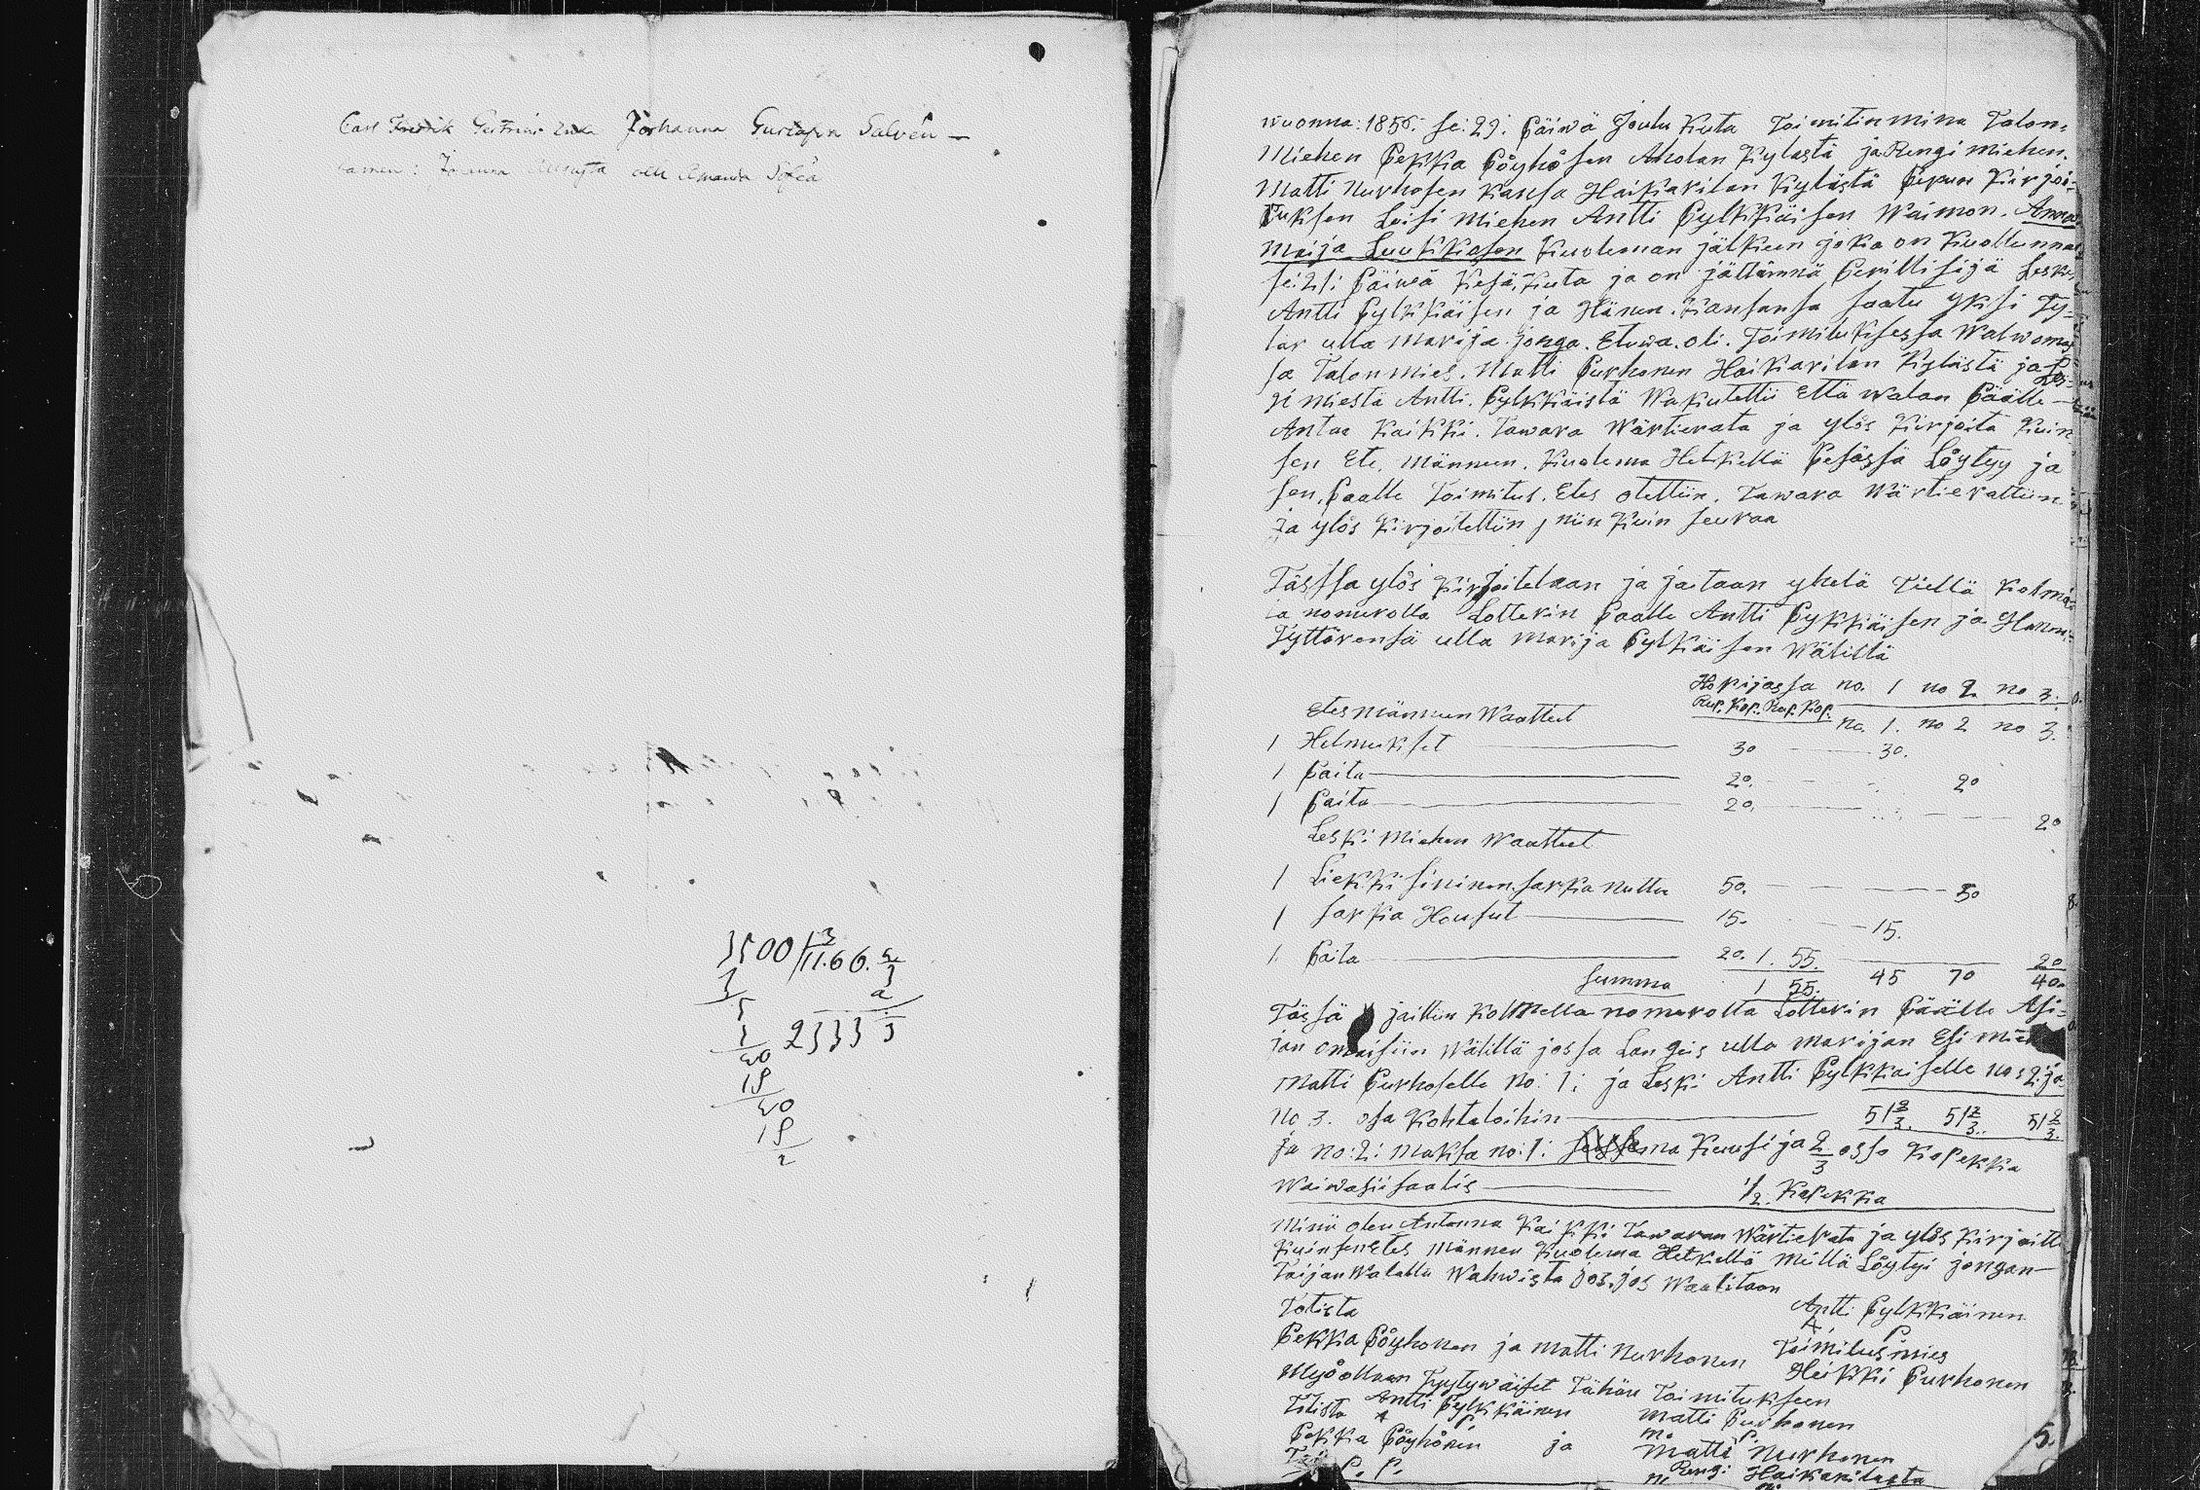 Carl Fredrik Johanna Gustafva Salvén —
Amanda Sofia
3500 / 3
11.66. 2/3
3
2
5
3
2333
20
18
20
18
2
wuonna: 1856. se: 29: päiwä Joulu kuta Toimitin minä Talon=
Miehen Pekka Pöyhösen Aholan kylästä ja Rengi miehen.
Matti Nurhosen kansa Haikarilan kylästä Perun kirjoi=
tuksen Leisi miehen Antti Pylkkäisen Waimon. Anna
Maija Luukkosen kuoleman jälkeen joka on kuollunna
se: 21: päiwä kesä, kuta ja on jättännä Perillisijä Leski
Antti Pylkkäisen ja Hänen. kansansa saatu yksi Ty=
tar ulla marija jonga. Etuwa. oli. Toimituksessa Walwomas
sa Talon mies. Matti Purhonen Haikarilan kylästä ja
miestä Antti. Pylkkäistä Wakutettu Että walan Päälle —
Antaa kaikki. Tawara Wärtierata ja ylös kirjoita kuin
sen Ete. männeen. kuolema Hetkellä Pesässä Löytyy ja
sen. Paalle Toimitus. Etes otettiin. Tawara Wärtierattiin
ja ylös kirjoitettiin, niin kuin seuraa
Tässsa ylös kirjoitetaan ja jataan yhetä Tiellä kolme
la nomerolla Lotterin Paalle Antti Pykkäisen ja Hänen
Tyttärensä ulla marija Pylkäisen Wälillä
no. 1 no 2 no 3.
Etes männeen Waatteet Rup. kop. Rup. kop. no. 1. no 2 no 3.
1 Helmukset 30 30.
1 Paita 20. 20
1 Paita 20. 20
Leski miehen Waatteet
1 Liekki sininen sarka nuttu 50. 50
1 sarka Housut 15. 15.
1. Paita 20. 1. 55. 20
summa 1 55. 45 70 40.
Tässä jaittiin kolmella nomerolla Lotterin Päälle Asi=
jan omaisiin Wälillä jossa Langeis ulla marijan Esi
Matti Purhoselle no: 1: ja Leski Antti Pylkkäiselle no: 2: ja
no 3. osa kohtaloihin 51 2/3. 51 2/3. 51 2/3.
ja no: 2: maksa no: 1: kuusi ja 2/3 ossa kopekka
Waiwasiisaalis 1/2. kopekka
Minä olen Antanna kaikki Tawaran Wärtierata ja ylös kirjoitt
kuin sen Etes männen kuolema Hetkellä Millä Löytyi jongan—
Taijan Walalla Wahwista jos, jos Waalitaan
Totista Antti Pylkkäinen
A. P.
Pekka Pöyhonen ja matti nurhonen Toimitus mies
Heikki Purhonen
Myö ollaan Tyytywäiset Tähän Toimitukseen
Totista Antti Pylkkäinen Matti Purhonen
A P. m. P.
Pekka Pöyhönen ja Matti Nurhonen
P. P. m. Rengi Haikarilasta
5.